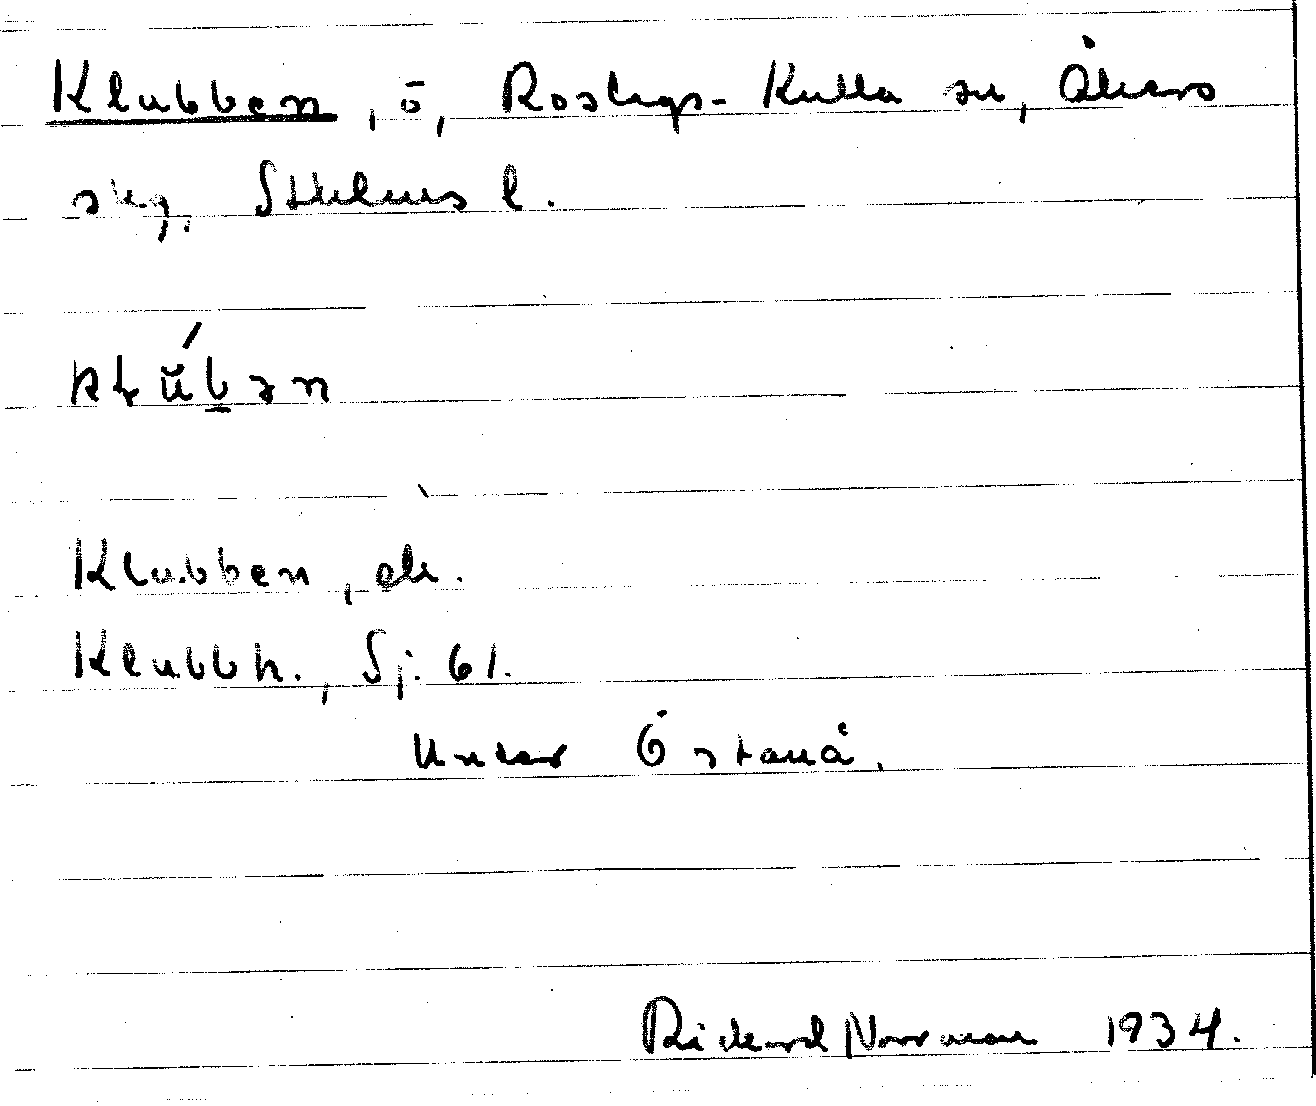 Klubben, ö, Roslags-Kulla sn, Åkers
skg, Sthlms l.
klŭ́b̲ən
Klubben, ek.
Klubbh., Sj. 61.
Under Östanå.
Rickard Norrman 1934.